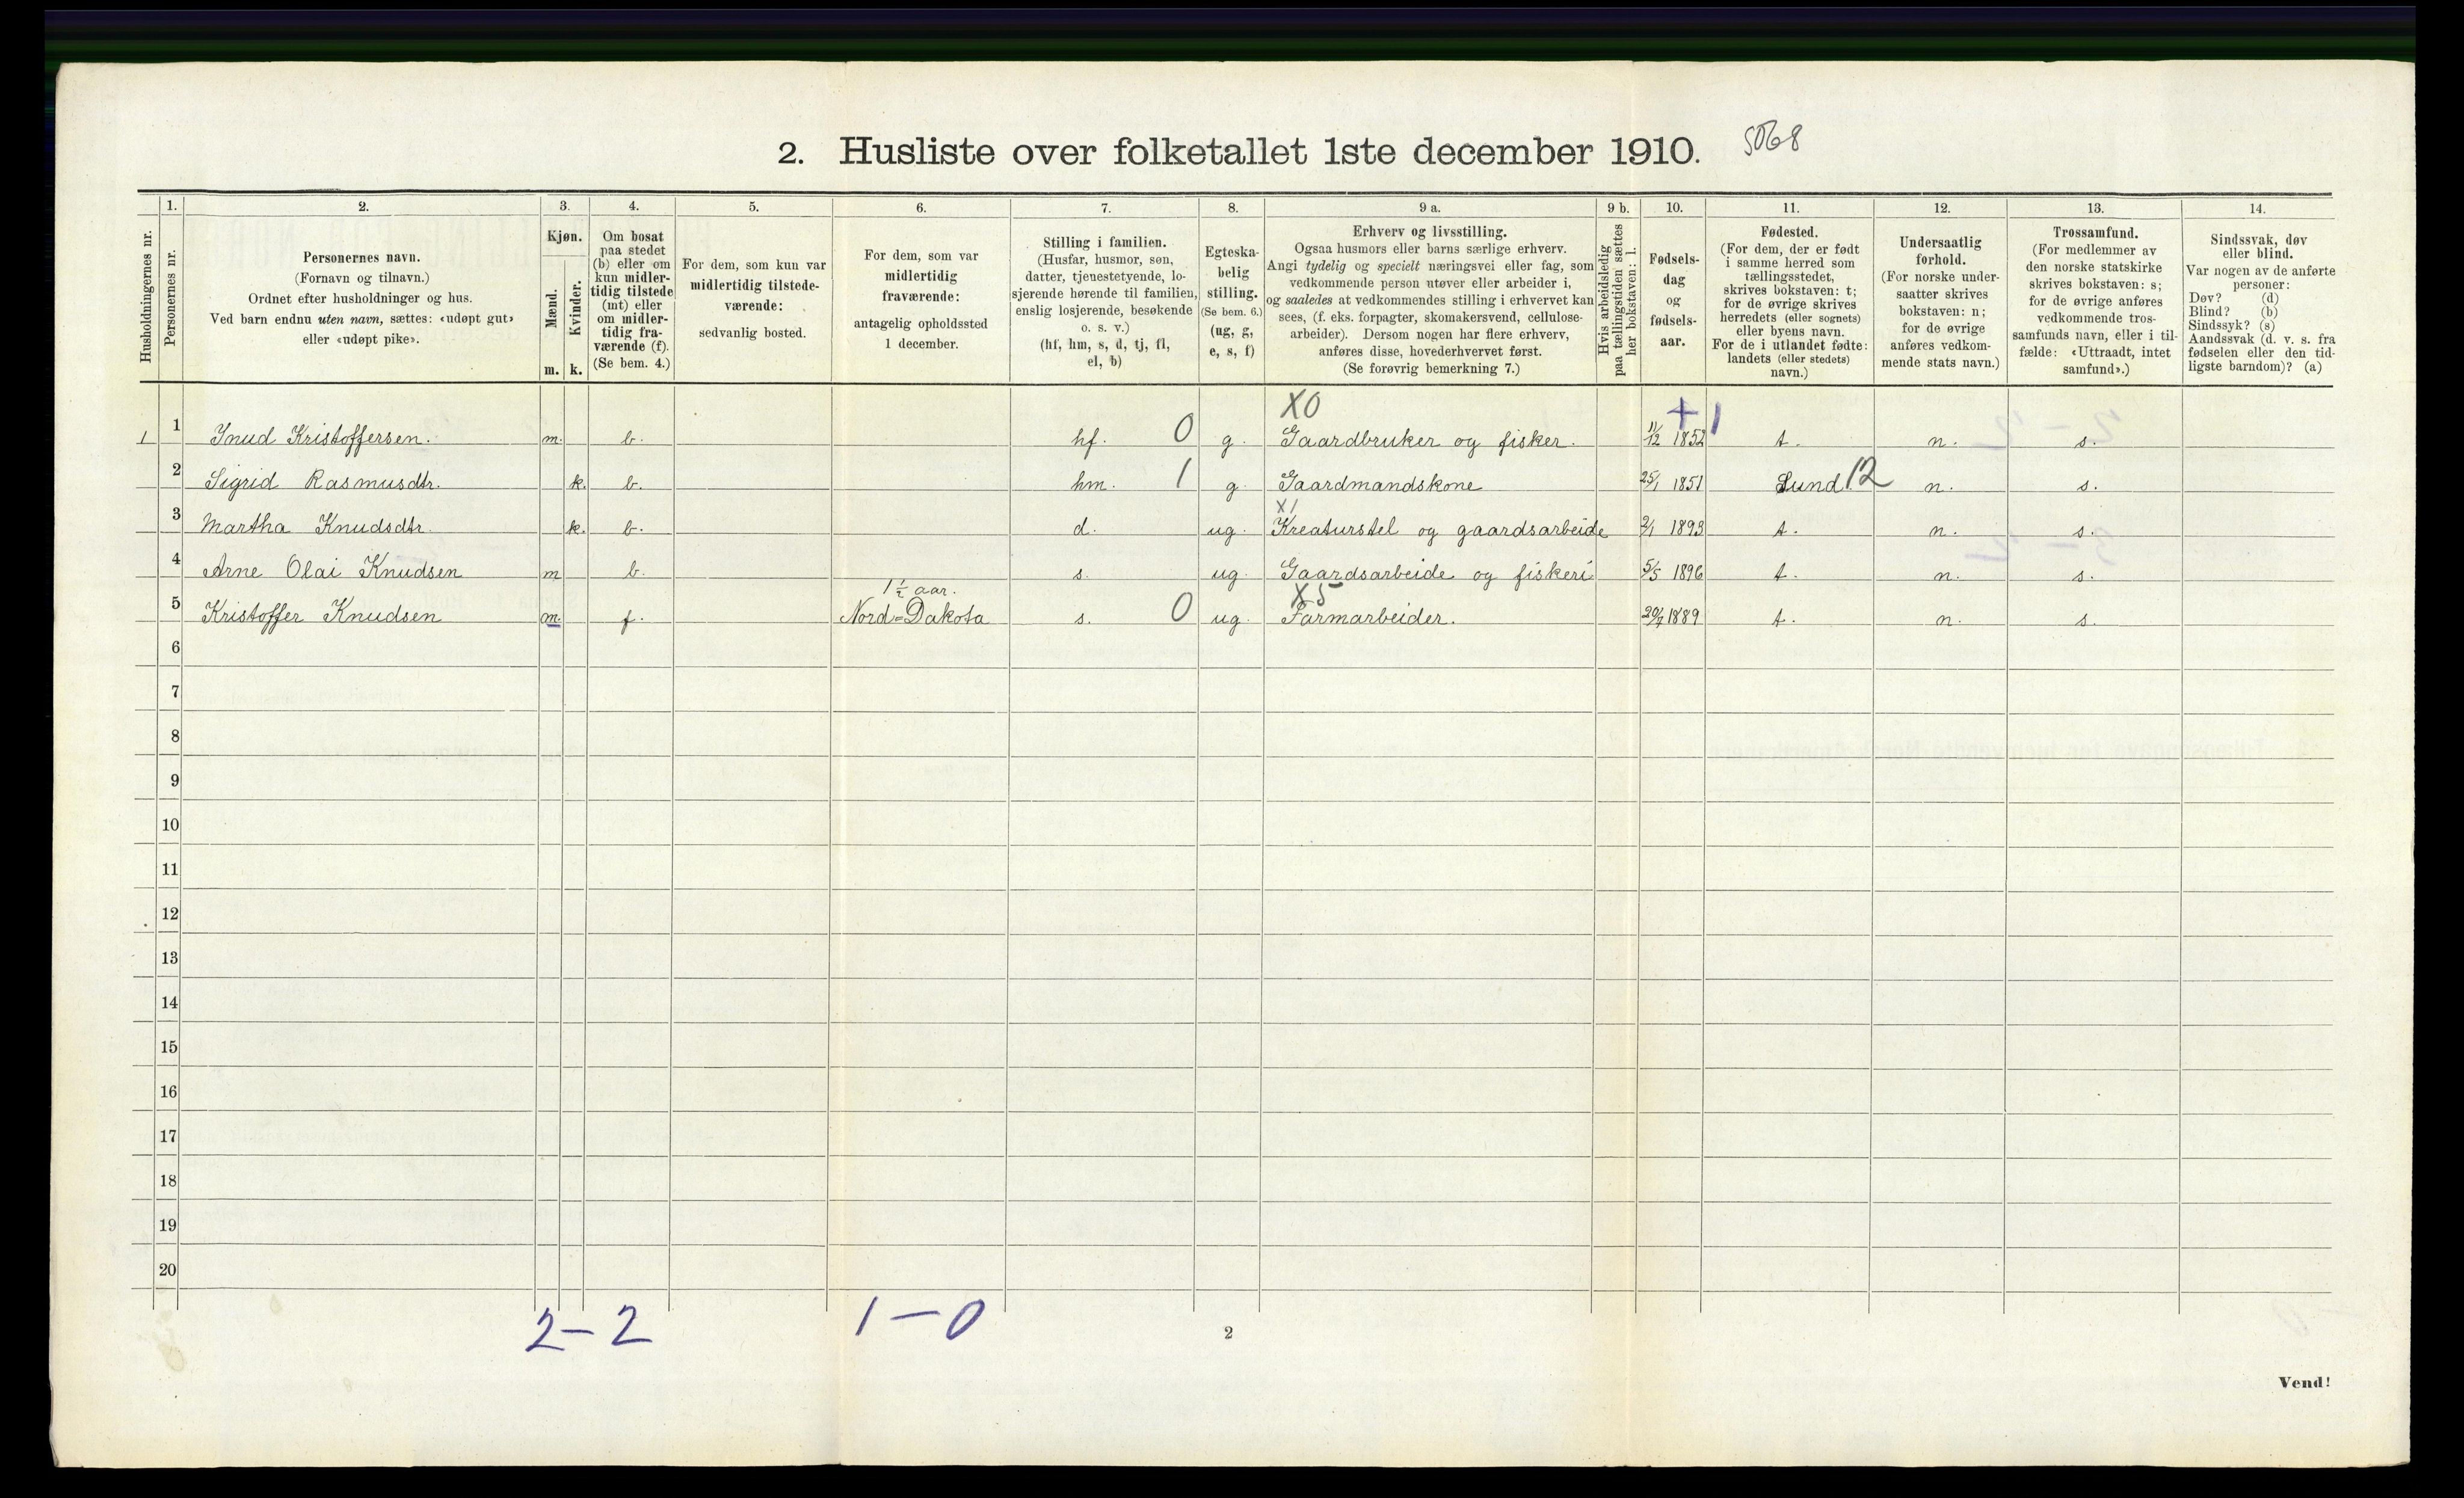 2. Husliste over folketallet 1ste december 1910. 5068
1. 2. 3. 4. 5. 6. 7. 8. 9 a. 9 b. 10. 11. 12. 13. 14.
Husholdningernes nr.
Personernes nr.
Personernes navn.
(Fornavn og tilnavn.)
Ordnet efter husholdninger og hus.
Ved barn endnu uten navn, sættes: «udøpt gut»
eller «udøpt pike».
Kjøn.
Mænd.
Kvinder.
m. k.
Om bosat
paa stedet
(b) eller om
kun midler-
tidig tilstede
(mt) eller
om midler-
tidig fra-
værende (f).
(Se bem. 4.)
For dem, som kun var
midlertidig tilstede-
værende:
sedvanlig bosted.
For dem, som var
midlertidig
fraværende:
antagelig opholdssted
1 december.
Stilling i familien.
(Husfar, husmor, søn,
datter, tjenestetyende, lo-
sjerende hørende til familien,
enslig losjerende, besøkende
o. s. v.)
(hf, hm, s, d, tj, fl,
el, b)
Egteska-
belig
stilling.
(Se bem. 6.)
(ug, g,
e, s, f)
Erhverv og livsstilling.
Ogsaa husmors eller barns særlige erhverv.
Angi tydelig og specielt næringsvei eller fag, som
vedkommende person utøver eller arbeider i,
og saaledes at vedkommendes stilling i erhvervet kan
sees, (f. eks. forpagter, skomakersvend, cellulose-
arbeider). Dersom nogen har flere erhverv,
anføres disse, hovederhvervet først.
(Se forøvrig bemerkning 7.)
Hvis arbeidsledig
paa tællingstiden sættes
her bokstaven: l.
Fødsels-
dag
og
fødsels-
aar.
Fødested.
(For dem, der er født
i samme herred som
tællingsstedet,
skrives bokstaven: t;
for de øvrige skrives
herredets (eller sognets)
eller byens navn.
For de i utlandet fødte:
landets (eller stedets)
navn.)
Undersaatlig
forhold.
(For norske under-
saatter skrives
bokstaven: n;
for de øvrige
anføres vedkom-
mende stats navn.)
Trossamfund.
(For medlemmer av
den norske statskirke
skrives bokstaven: s;
for de øvrige anføres
vedkommende tros-
samfunds navn, eller i til-
fælde: «Uttraadt, intet
samfund».)
Sindssvak, døv
eller blind.
Var nogen av de anførte
personer:
Døv? (d)
Blind? (b)
Sindssyk? (s)
Aandssvak (d. v. s. fra
fødselen eller den tid-
ligste barndom)? (a)
X0 + 1
1 1 Knud Kristoffersen. m. b. hf. 0 g. Gaardbruker og fisker. 11/12 1852 t. n. s.
2 Sigrid Rasmusdtr. k. b. hm. 1 g. Gaardmandskone 25/1 1851 Lund. 12 n. s.
X1
3 Martha Knudsdtr. k. b. d. ug. Kreaturstel og gaardsarbeide 2/1 1893 t. n. s.
4 Arne Olai Knudsen m b. s. ug. Gaardsarbeide og fiskeri 5/5 1896 t. n. s.
1 1/2 aar. X5
5 Kristoffer Knudsen m. f. Nord=Dakota s. 0 ug. Farmarbeider. 20/7 1889 t. n. s.
6
7
8
9
10
11
12
13
14
15
16
17
18
19
20
2 – 2 1 – 0
2
Vend!